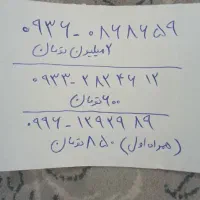 ۰۹۳۶-۰۸۶۸۶۵۹
۲ میلیون تومان
۰۹۳۳-۲۸۲۴۶۱۲
۶۰۰ تومان
۰۹۹۶-۱۲۹۲۹۸۹
(همراه اول) ۸۵۰ تومان